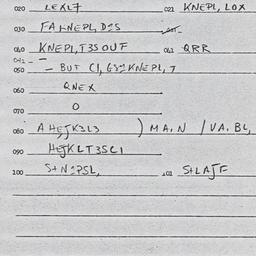 020 LEXL7 021 KNEPL, LOX
030 FALKNEPL, D2S
040 KNEPL, T3S OUF 041 QRR
042 –
050 – BUT C1, G3 KNEPL, 7
060 QNEX
070 O
080 A HEJK3L3 ) MA, N / VA. BL,
090 HEJKLT3SC1
100 S+N PSL, 101 S+LAJF